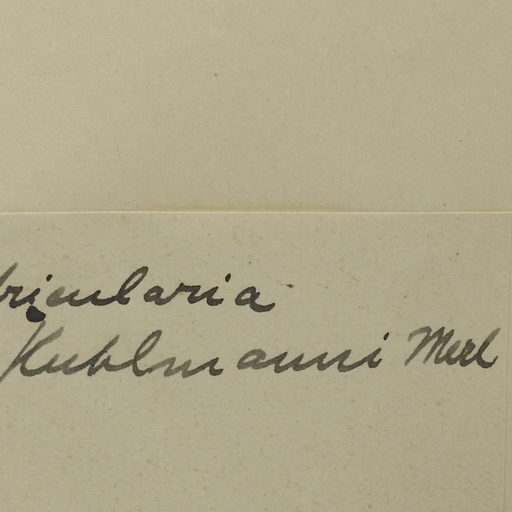 tricularia
Kuhlmanni Merl